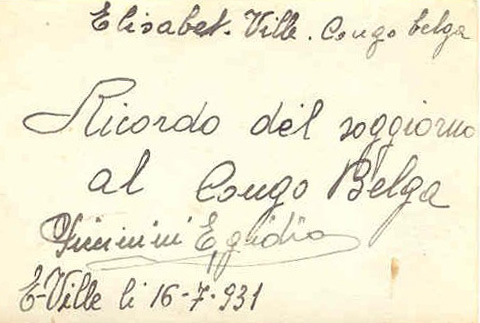 Elisabet. Ville. Congo belga
Ricordo del soggiorno
al Congo Belga
Piccinini Egidio
E-Ville li 16-7-931